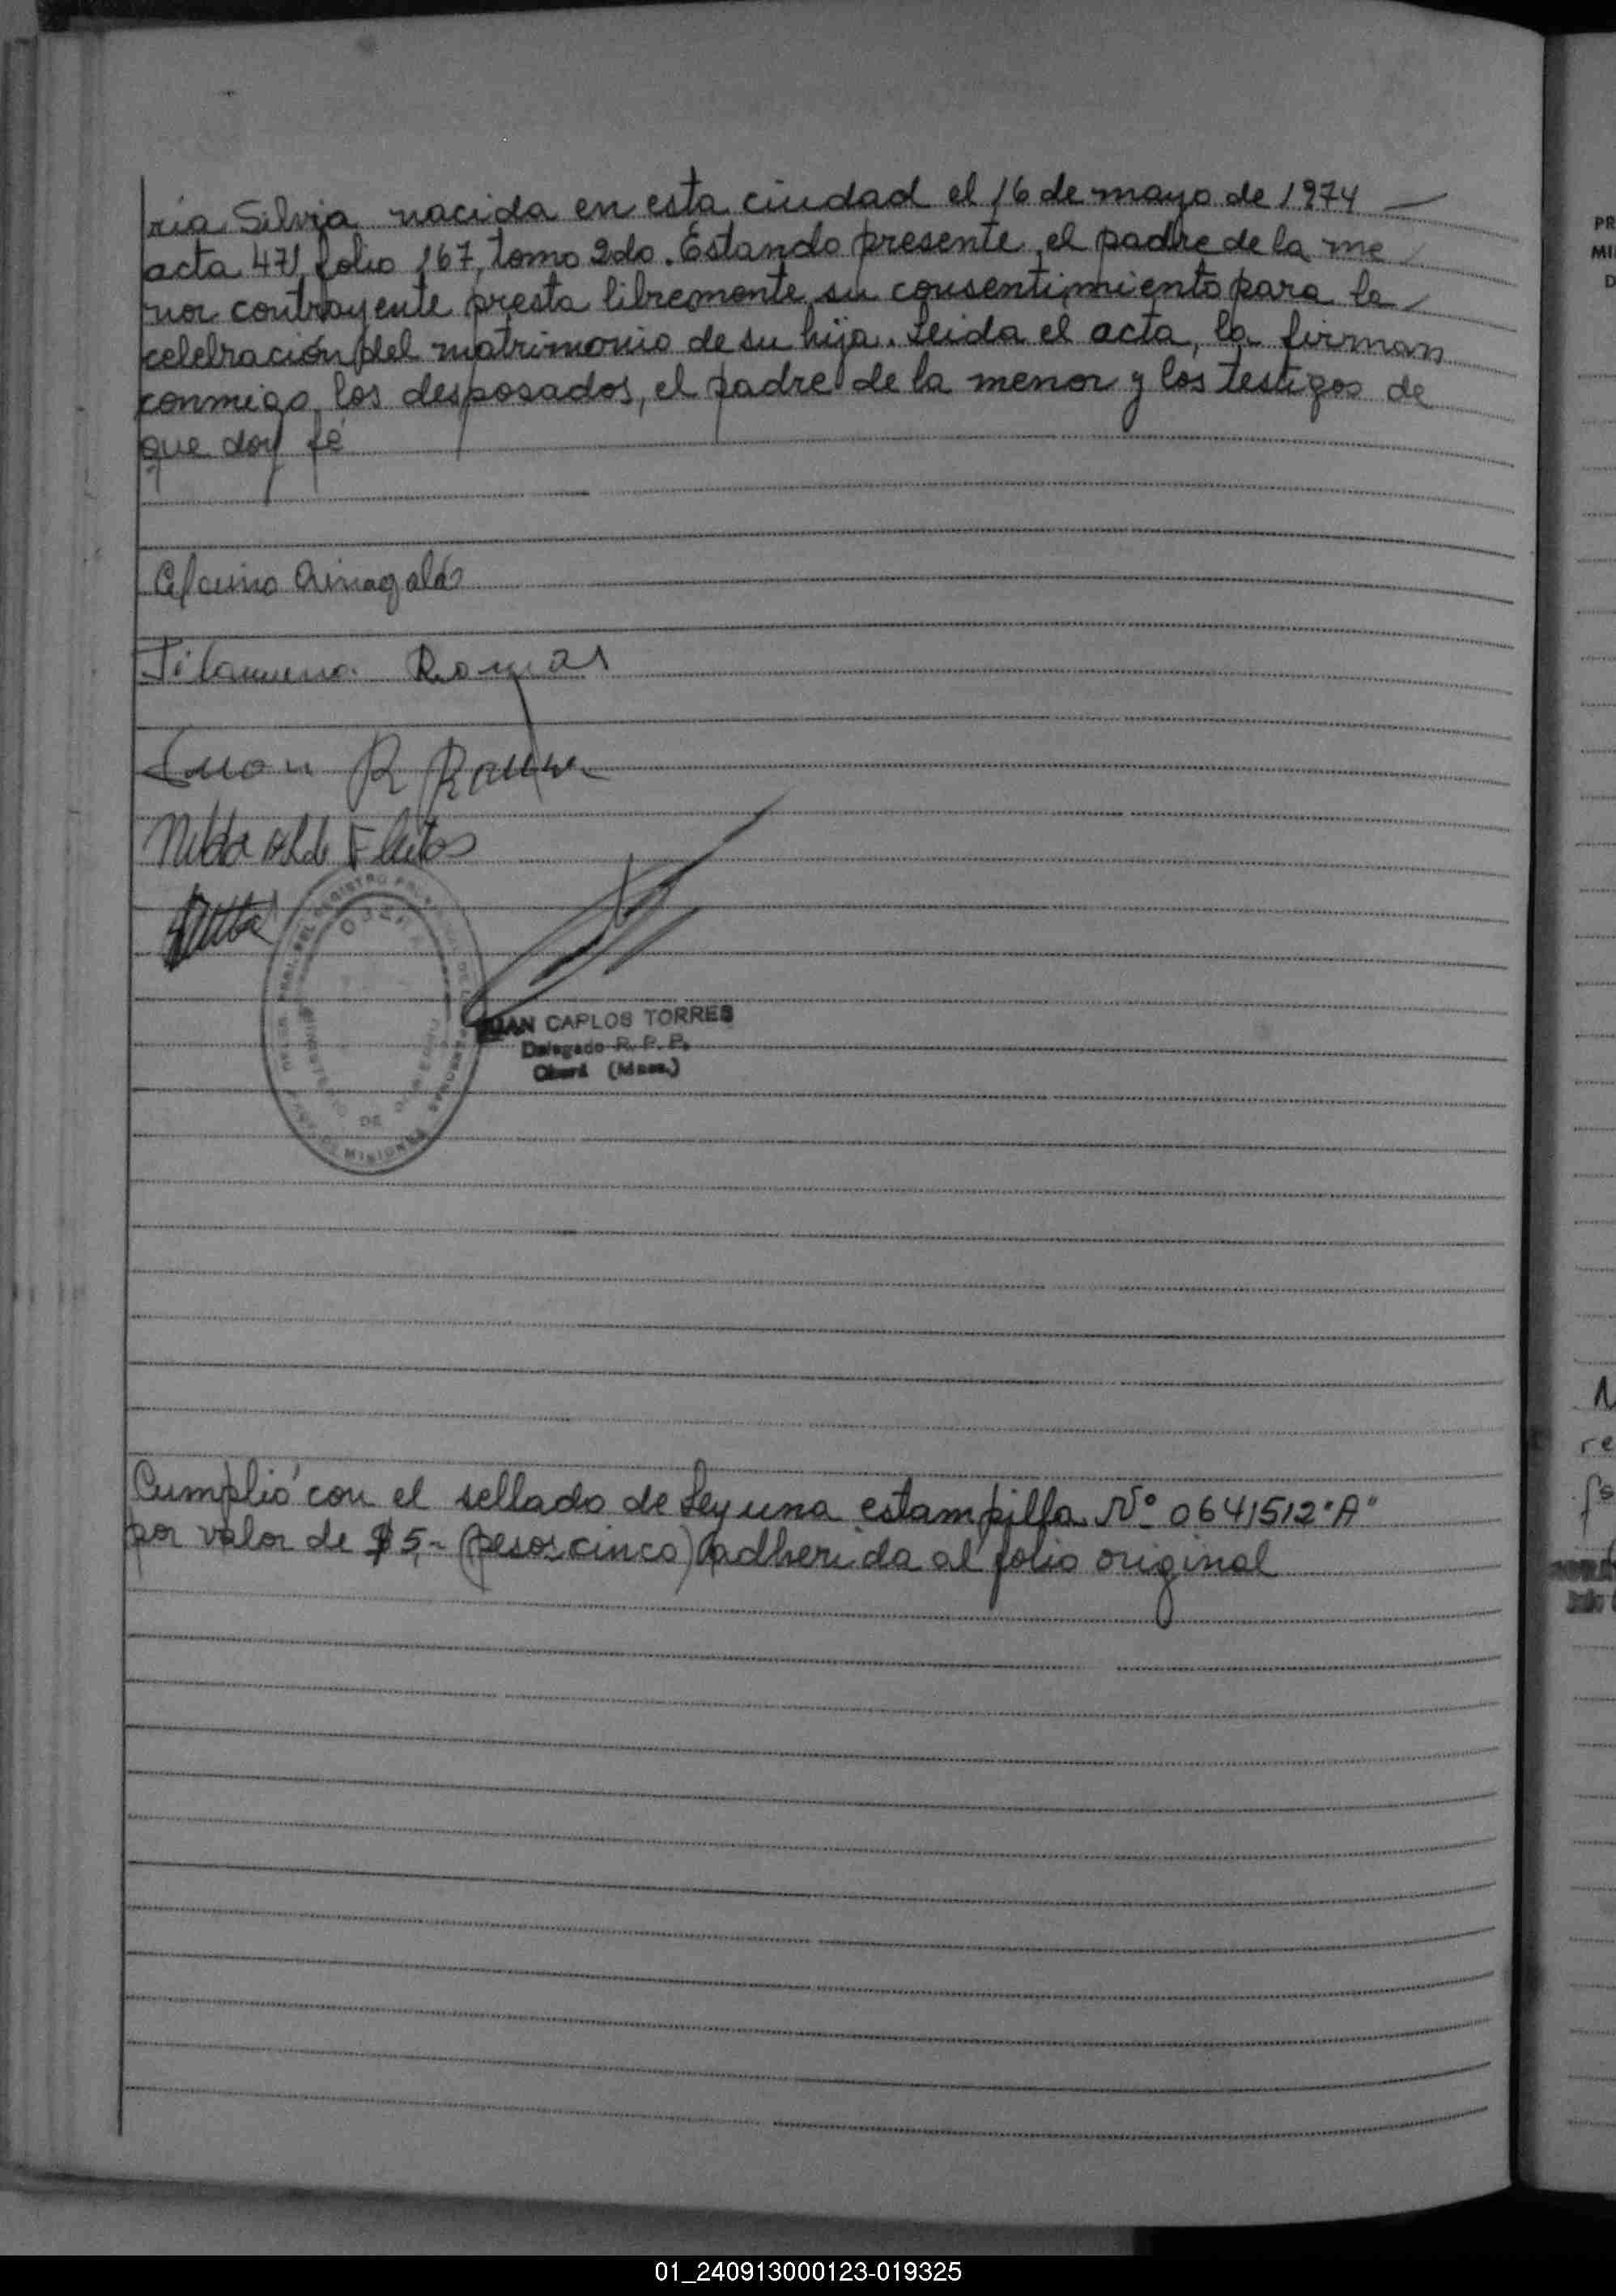 ría Silvia nacida en esta ciudad el 16 de mayo de 1974 —
acta 471, folio 167, tomo 2do. Estando presente el padre de la me
nor contrayente presta libremente su consentimiento para la
celebración del matrimonio de su hija. Leida el acta, la firman
conmigo, los desposados, el padre de la menor y los testigos de
que doy fé
Filomena Rojas
Juan R
JUAN CARLOS TORRES
Delegado R. P. P.
Oberá (Mnes.)
OBERA
DE
MISIONES
Cumplió con el sellado de Ley una estampilla Nº 0641512 "A"
por valor de $ 5,- (pesos cinco) adherida al folio original
PR
MI
D
re
01_240913000123-019325